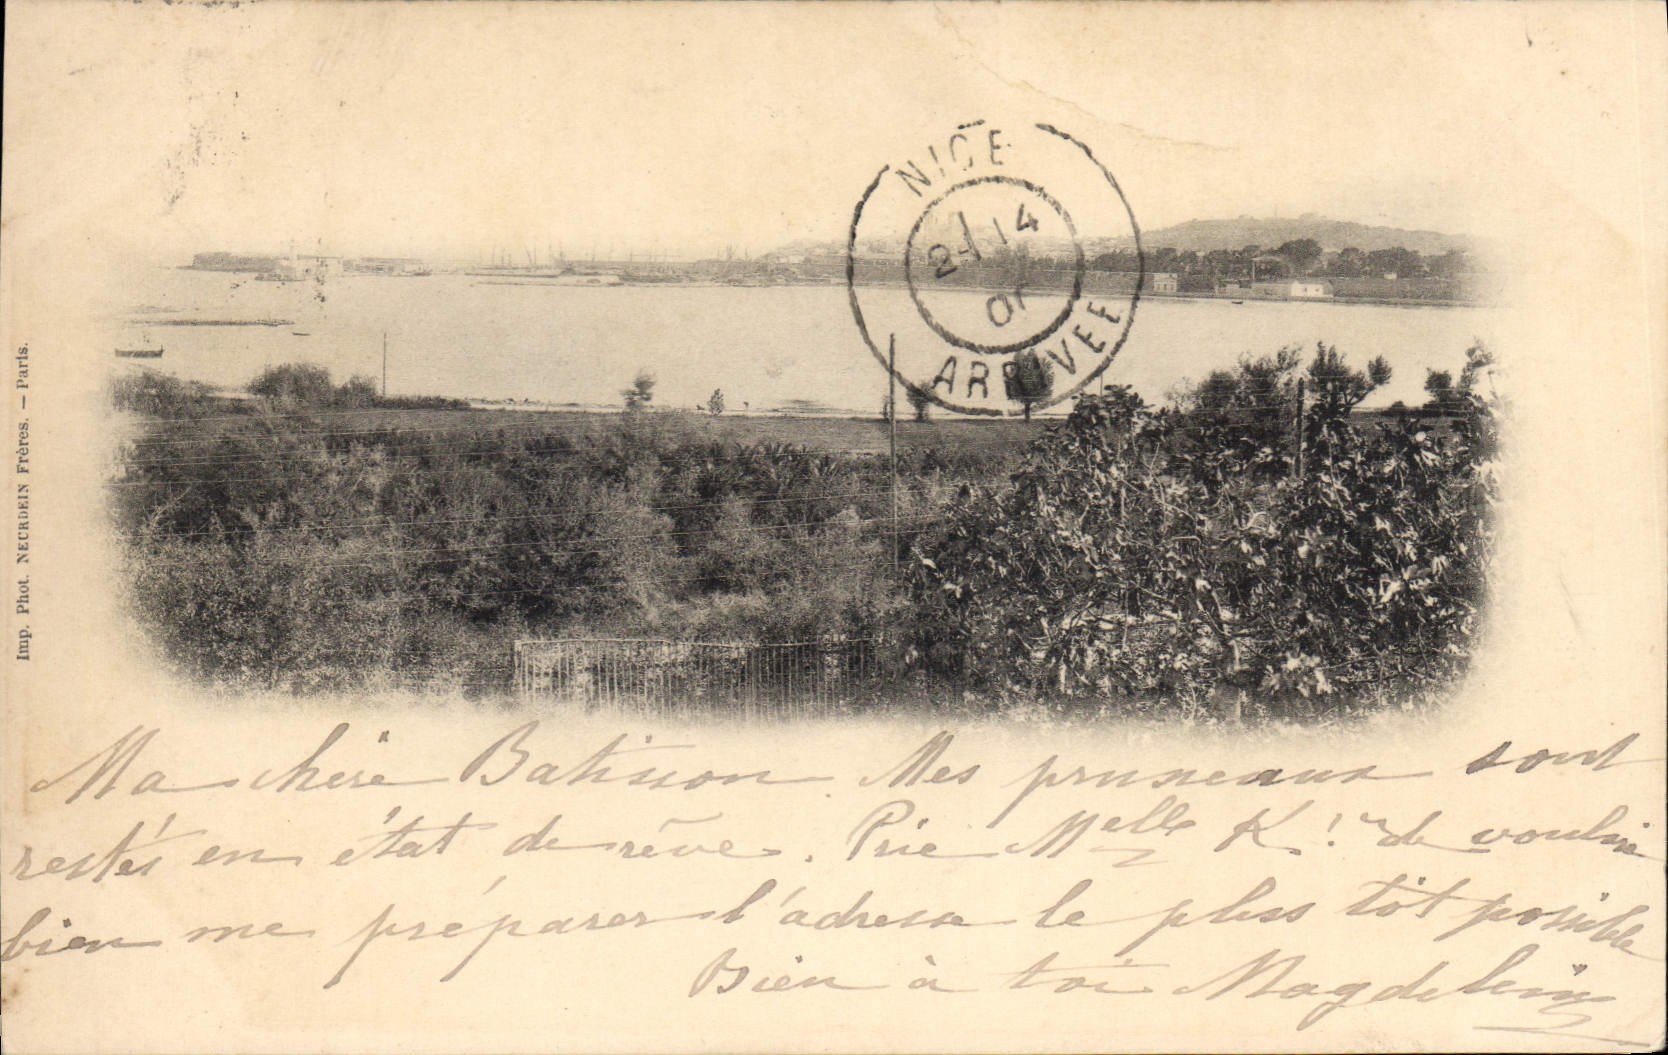 Imp. Phot. NEURDEIN Frères. — Paris.
NICE
14
01
ARRIVEE
Ma chère Batisson. Mes pruneaux sont
restés en état de rêve. Prie Melle K. de vouloir
bien me préparer l'adresse le plus tôt possible
Bien à toi Magdeleine